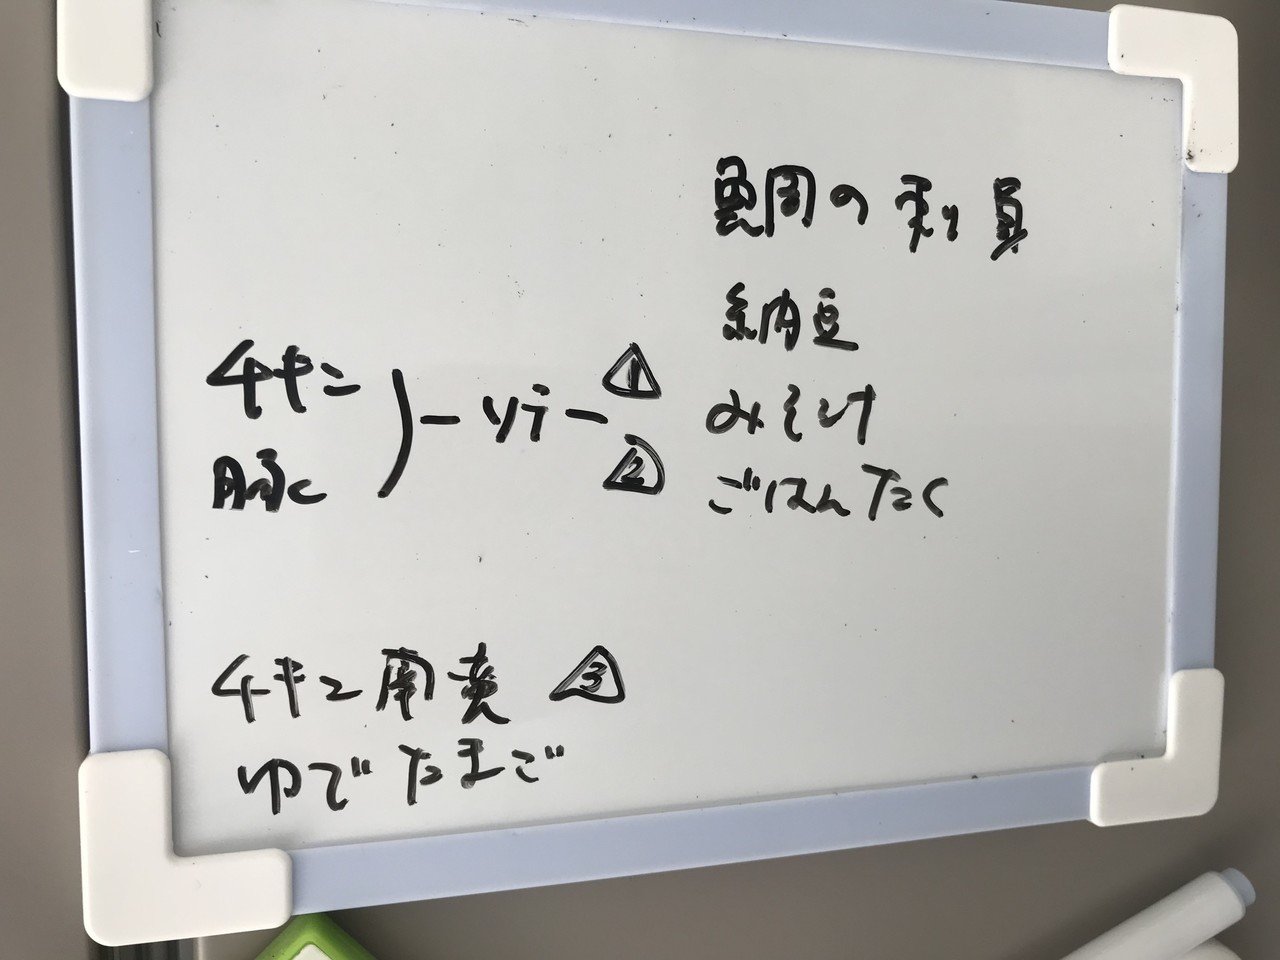 鯛の刺身
納豆
みそ汁
ごはんたく
チキン
豚
ーソテー
1
2
チキン南蛮 3
ゆでたまご